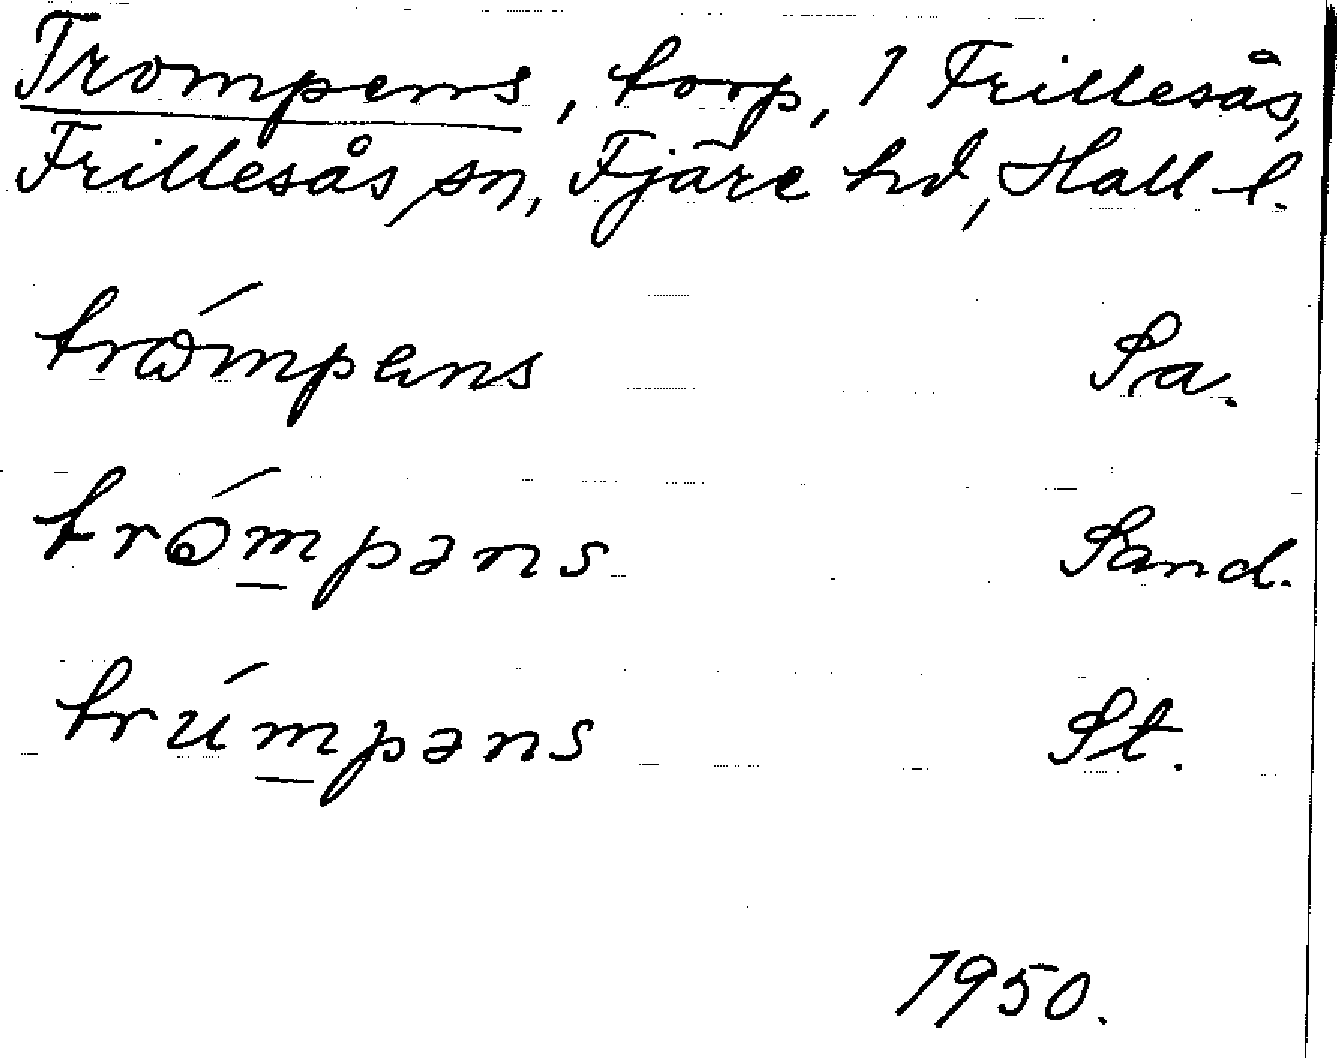 Trompens, torp, 1 Frillesås,
Frillesås sn, Fjäre hd, Hall l.
trómpens Sa.
trómpəns Sand.
trúmpəns St.
1950.